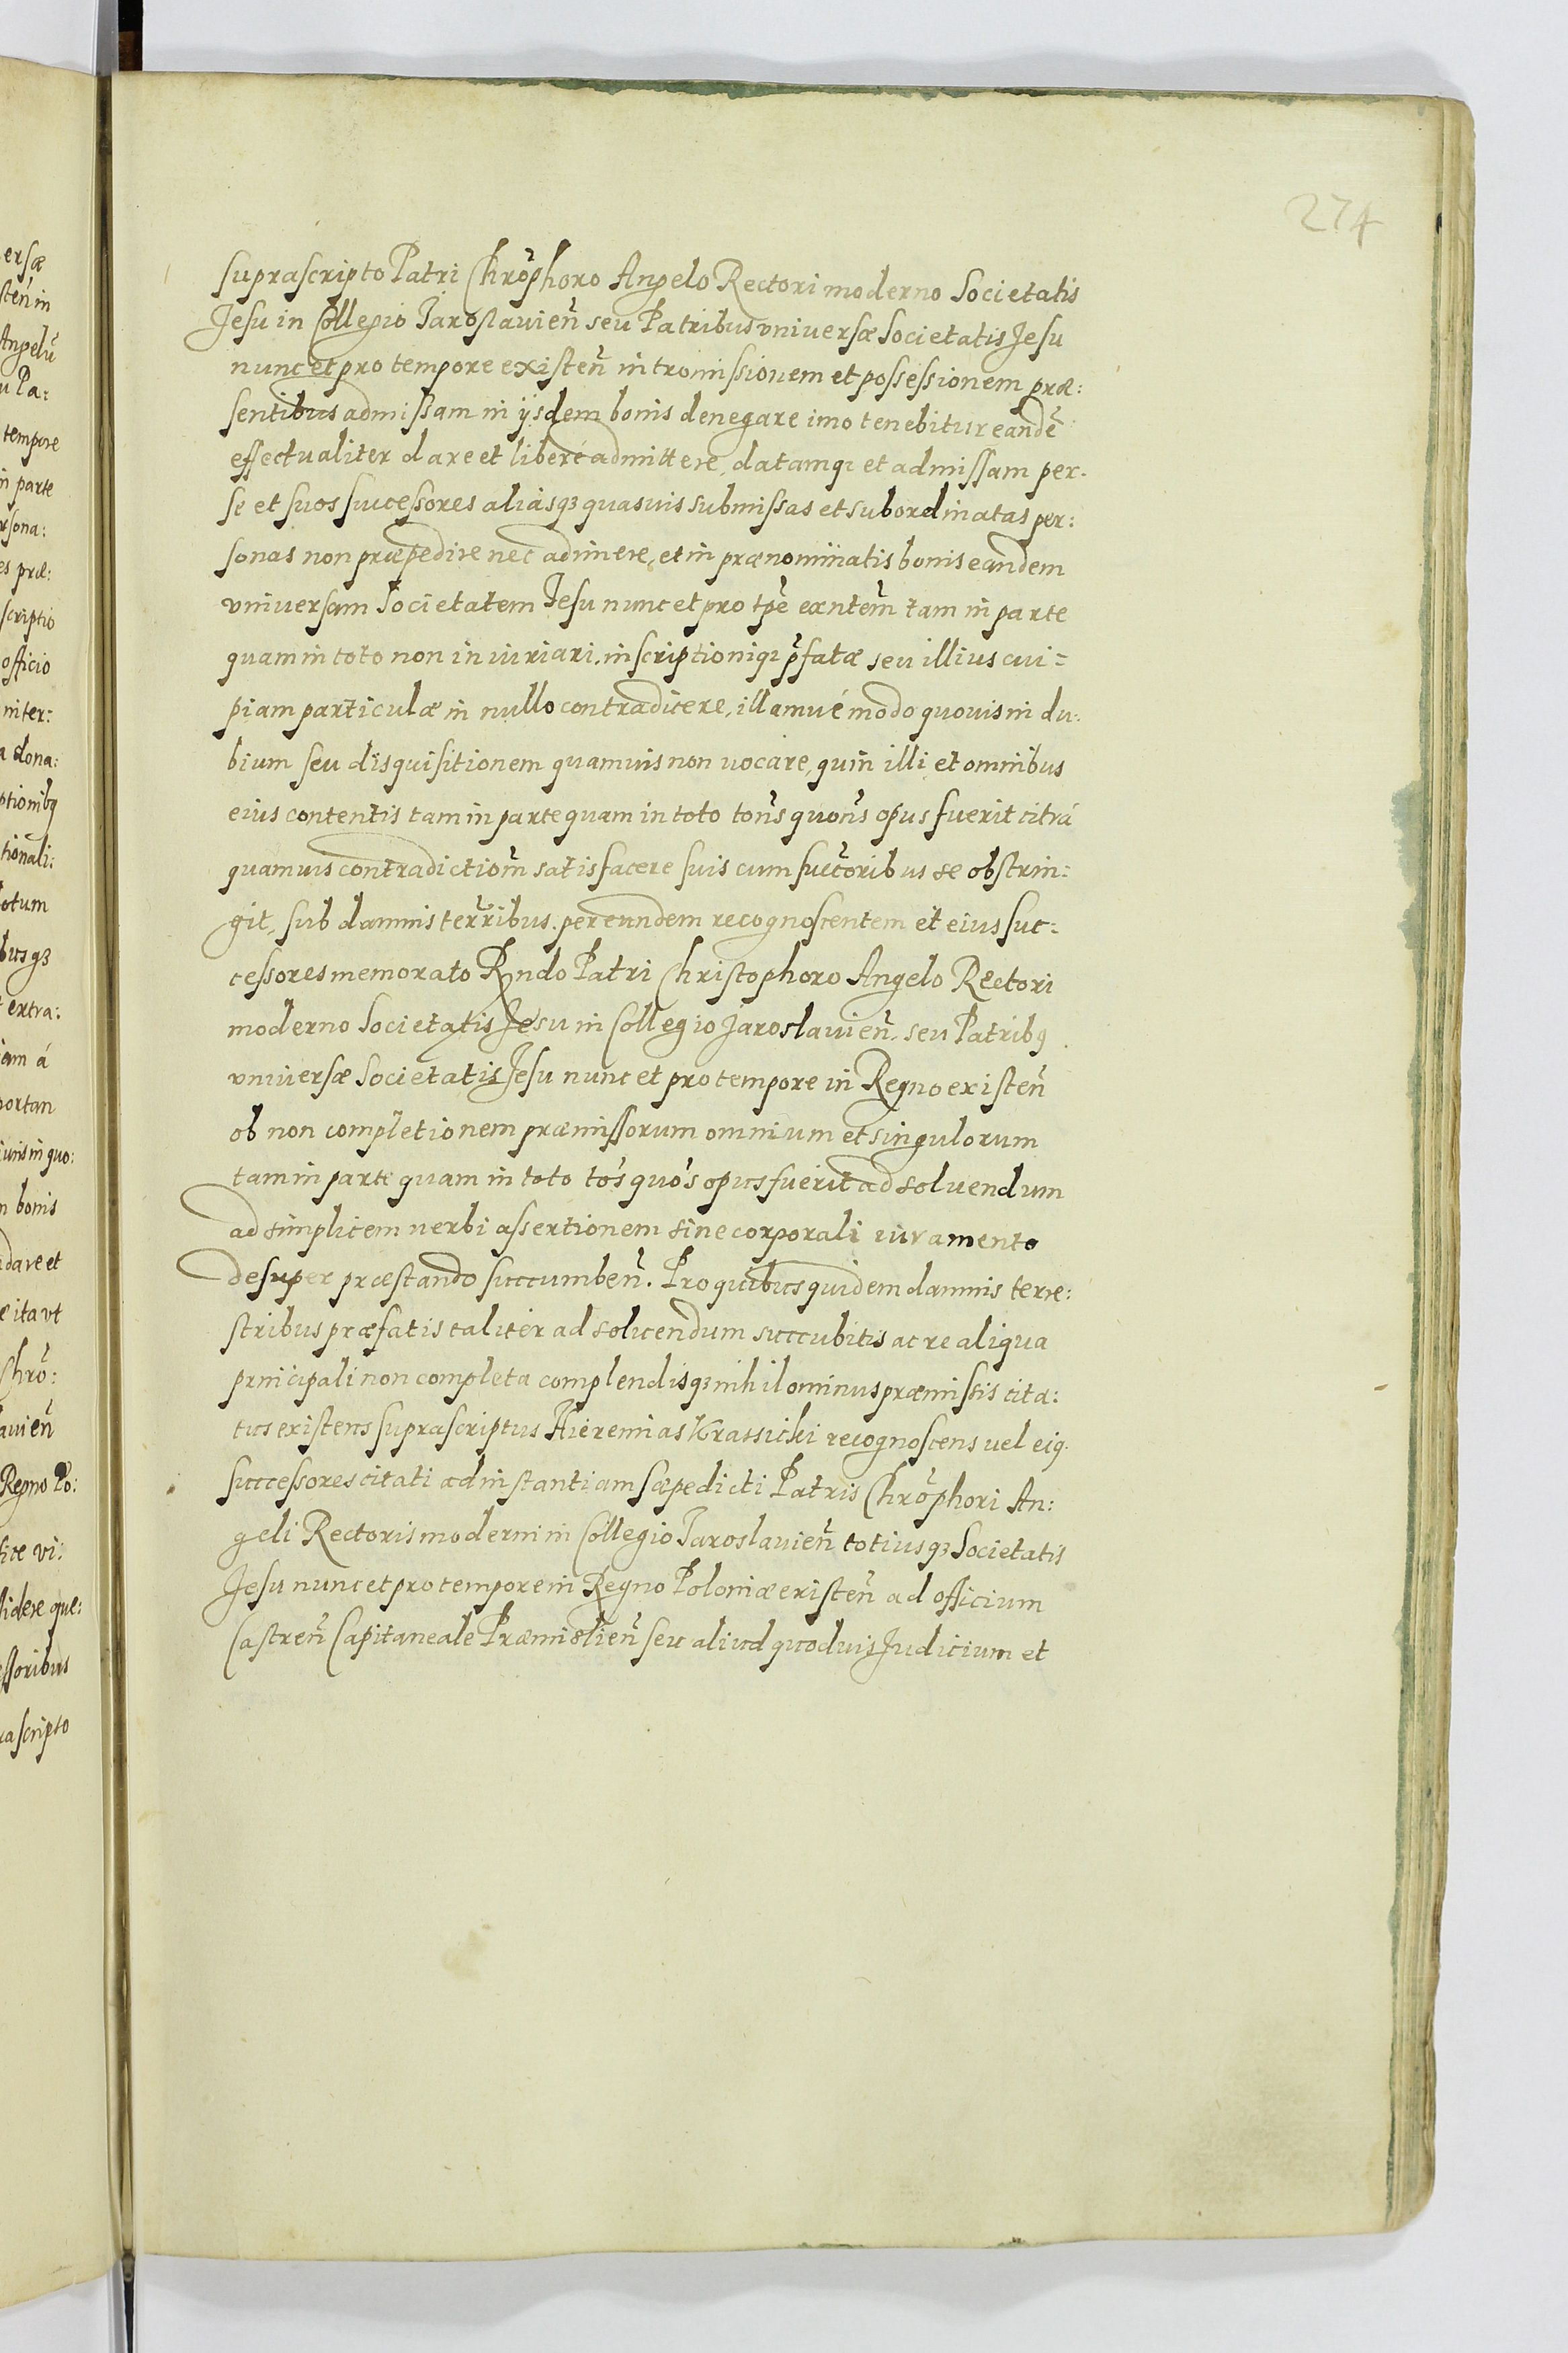 274
suprascripto Patri Chrõphoro Angelo Rectori moderno Societatis
Jesu in Collegio Jaroslavien̄ seu Patribus vniversæ Societatis Jesu
nunc et pro tempore existen̄ intromissionem et possessionem præ:
sentibus admissam in ijsdem bonis denegare imo tenebitur eandē
effectualiter dare et liberé admittere, datamq₃ et admissam per-
se et suos successores aliasq₃ quasuis submissas et subordinatas per:
sonas non præpedire nec adimere, et in prænominatis bonis eandem
vniversam Societatem Jesu nunc et pro tp̄e exn̄tem tam in parte
quam in toto non iniuriari, inscriptioniq₃ p̄fatæ seu illius cui=
piam particulæ in nullo contradicere, illamué modo quouis in du:
bium seu disquisitionem quamuis non uocare, quin illi et omnibus
eius contentis tam in parte quam in toto ton̄s quon̄s opus fuerit citrá
quamuis contradiction̄ satisfacere suis cum succ̄oribus se obstrin:
git, sub damnis terr̄ribus. per eundem recognoscentem et eius suc:
cessores memorato Rn̄do Patri Christophoro Angelo Rectori
moderno Societatis Jesu in Collegio Jaroslavien̄. seu Patribꝰ
vniuersæ Societatis Jesu nunc et pro tempore in Regno existen̄
ob non completionem præmissorum omnium et singulorum
tam in parte quam in toto tōs quōs opus fuerit ad soluendum
ad simplicem uerbi assertionem sine corporali iuramento
desuper præstando succumben̄. Pro quibus quidem damnis terre:
stribus præfatis taliter ad soluendum succubitis ac re aliqua
principali non completa complendisq₃ nihilominus præmissis cita:
tus existens suprascriptus Hieremias Krassicki recognoscens uel eiꝰ
successores citati ad instantiam sæpedicti Patris Chrōphori An:
geli Rectoris moderni in Collegio Jaroslavien̄ totiusq₃ Societatis
Jesu nunc et pro tempore in Regno Poloniæ existen̄ ad officium
Castren̄ Capitaneale Præmislien̄ seu aliud quoduis Judicium et